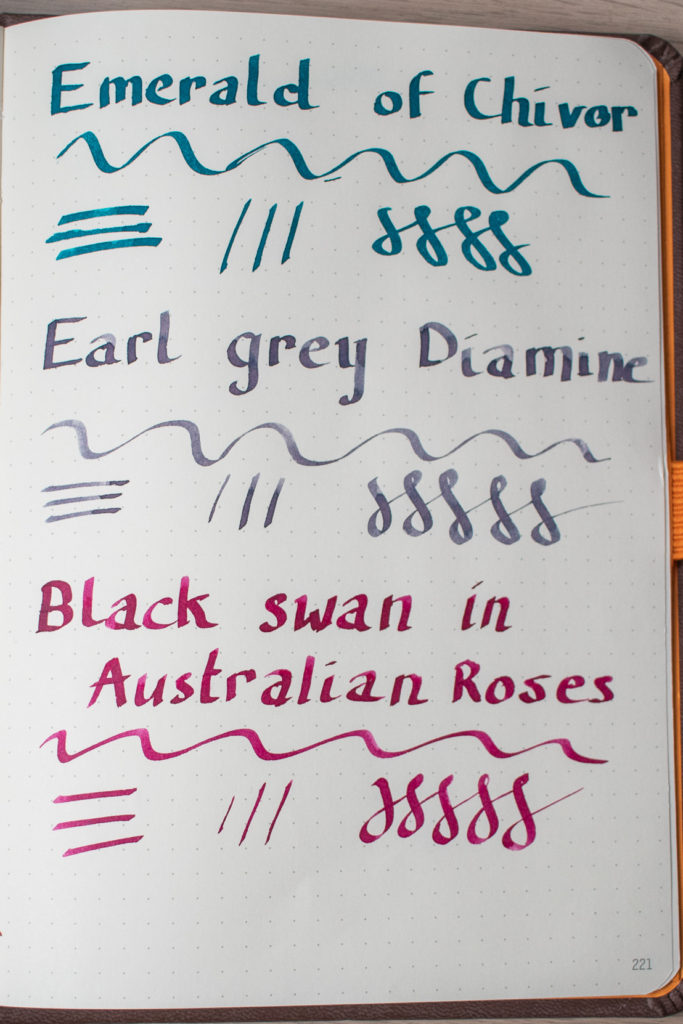 Emerald of Chivor
Earl grey Diamine
Black swan in
Australian Roses
221